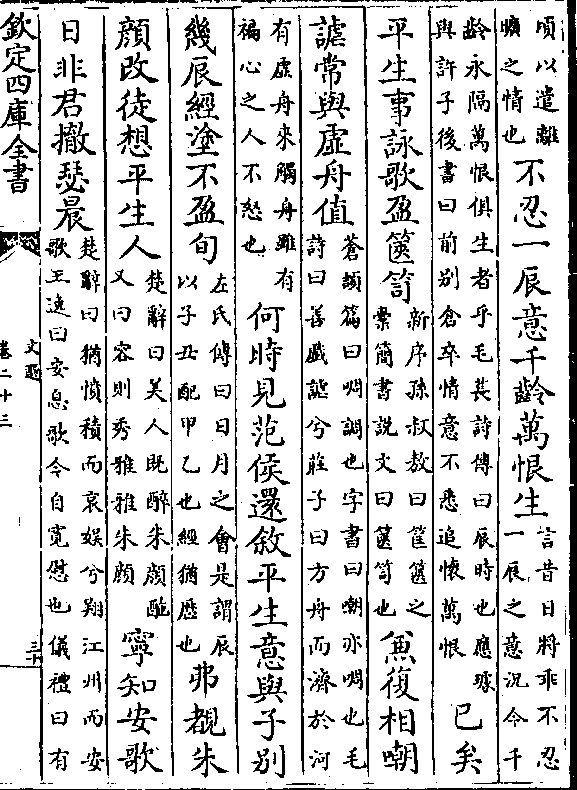 頃以遣離
曠之情也
不忍一辰意千齡萬恨生
言昔日將乖不忍
一辰之意况今千
齡永隔萬恨俱生者乎毛萇詩傳曰辰時也應璩
與許子後書曰前别倉卒情意不悉追懷萬恨
已矣
平生事詠歌盈篋笥
新序孫叔敖曰筐篋之
槖簡書説文曰篋笥也
兼復相嘲
謔常與虚舟值
蒼頡篇曰啁調也字書曰嘲亦啁也毛
詩曰善戲謔兮莊子曰方舟而濟於河
有虚舟來觸舟雖有
褊心之人不怒也
何時見范侯還敘平生意與子别
幾辰經塗不盈旬
左氏傳曰日月之會是謂辰
以子丑配甲乙也經猶歴也
弗覩朱
顔改徒想平生人
楚辭曰美人既醉朱顔酡
又曰容則秀雅雅朱顔
寧知安歌
日非君撤瑟晨
楚辭曰猶憤積而哀娱兮翔江州而安
歌王逸曰安息歌令自寛慰也儀禮曰有
欽定四庫全書
文選
卷二十三
三十